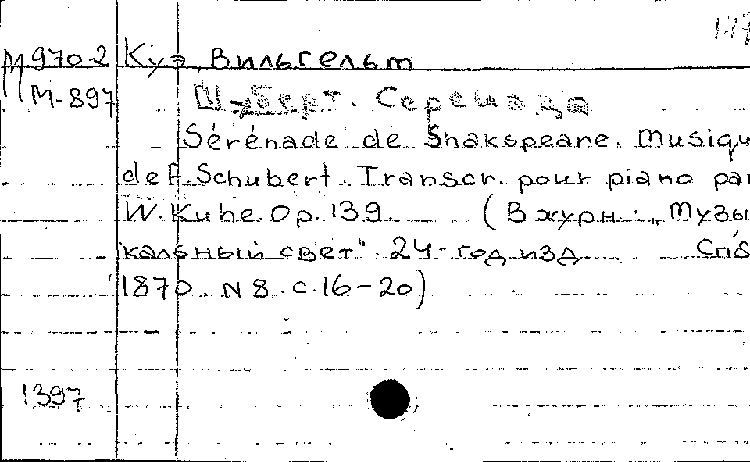 117
М970-2 Куэ, Вильгельм
М-897 Шуберт. Серенада
Sérénade de Shakspeare. Musiqu
de F. Schubert. Transcr. pour piano par
W. Kuhe. Op. 139 (В журн. „Музы
кальный свет" 24-год изд Спб
1870 N 8. с. 16-20)
1397